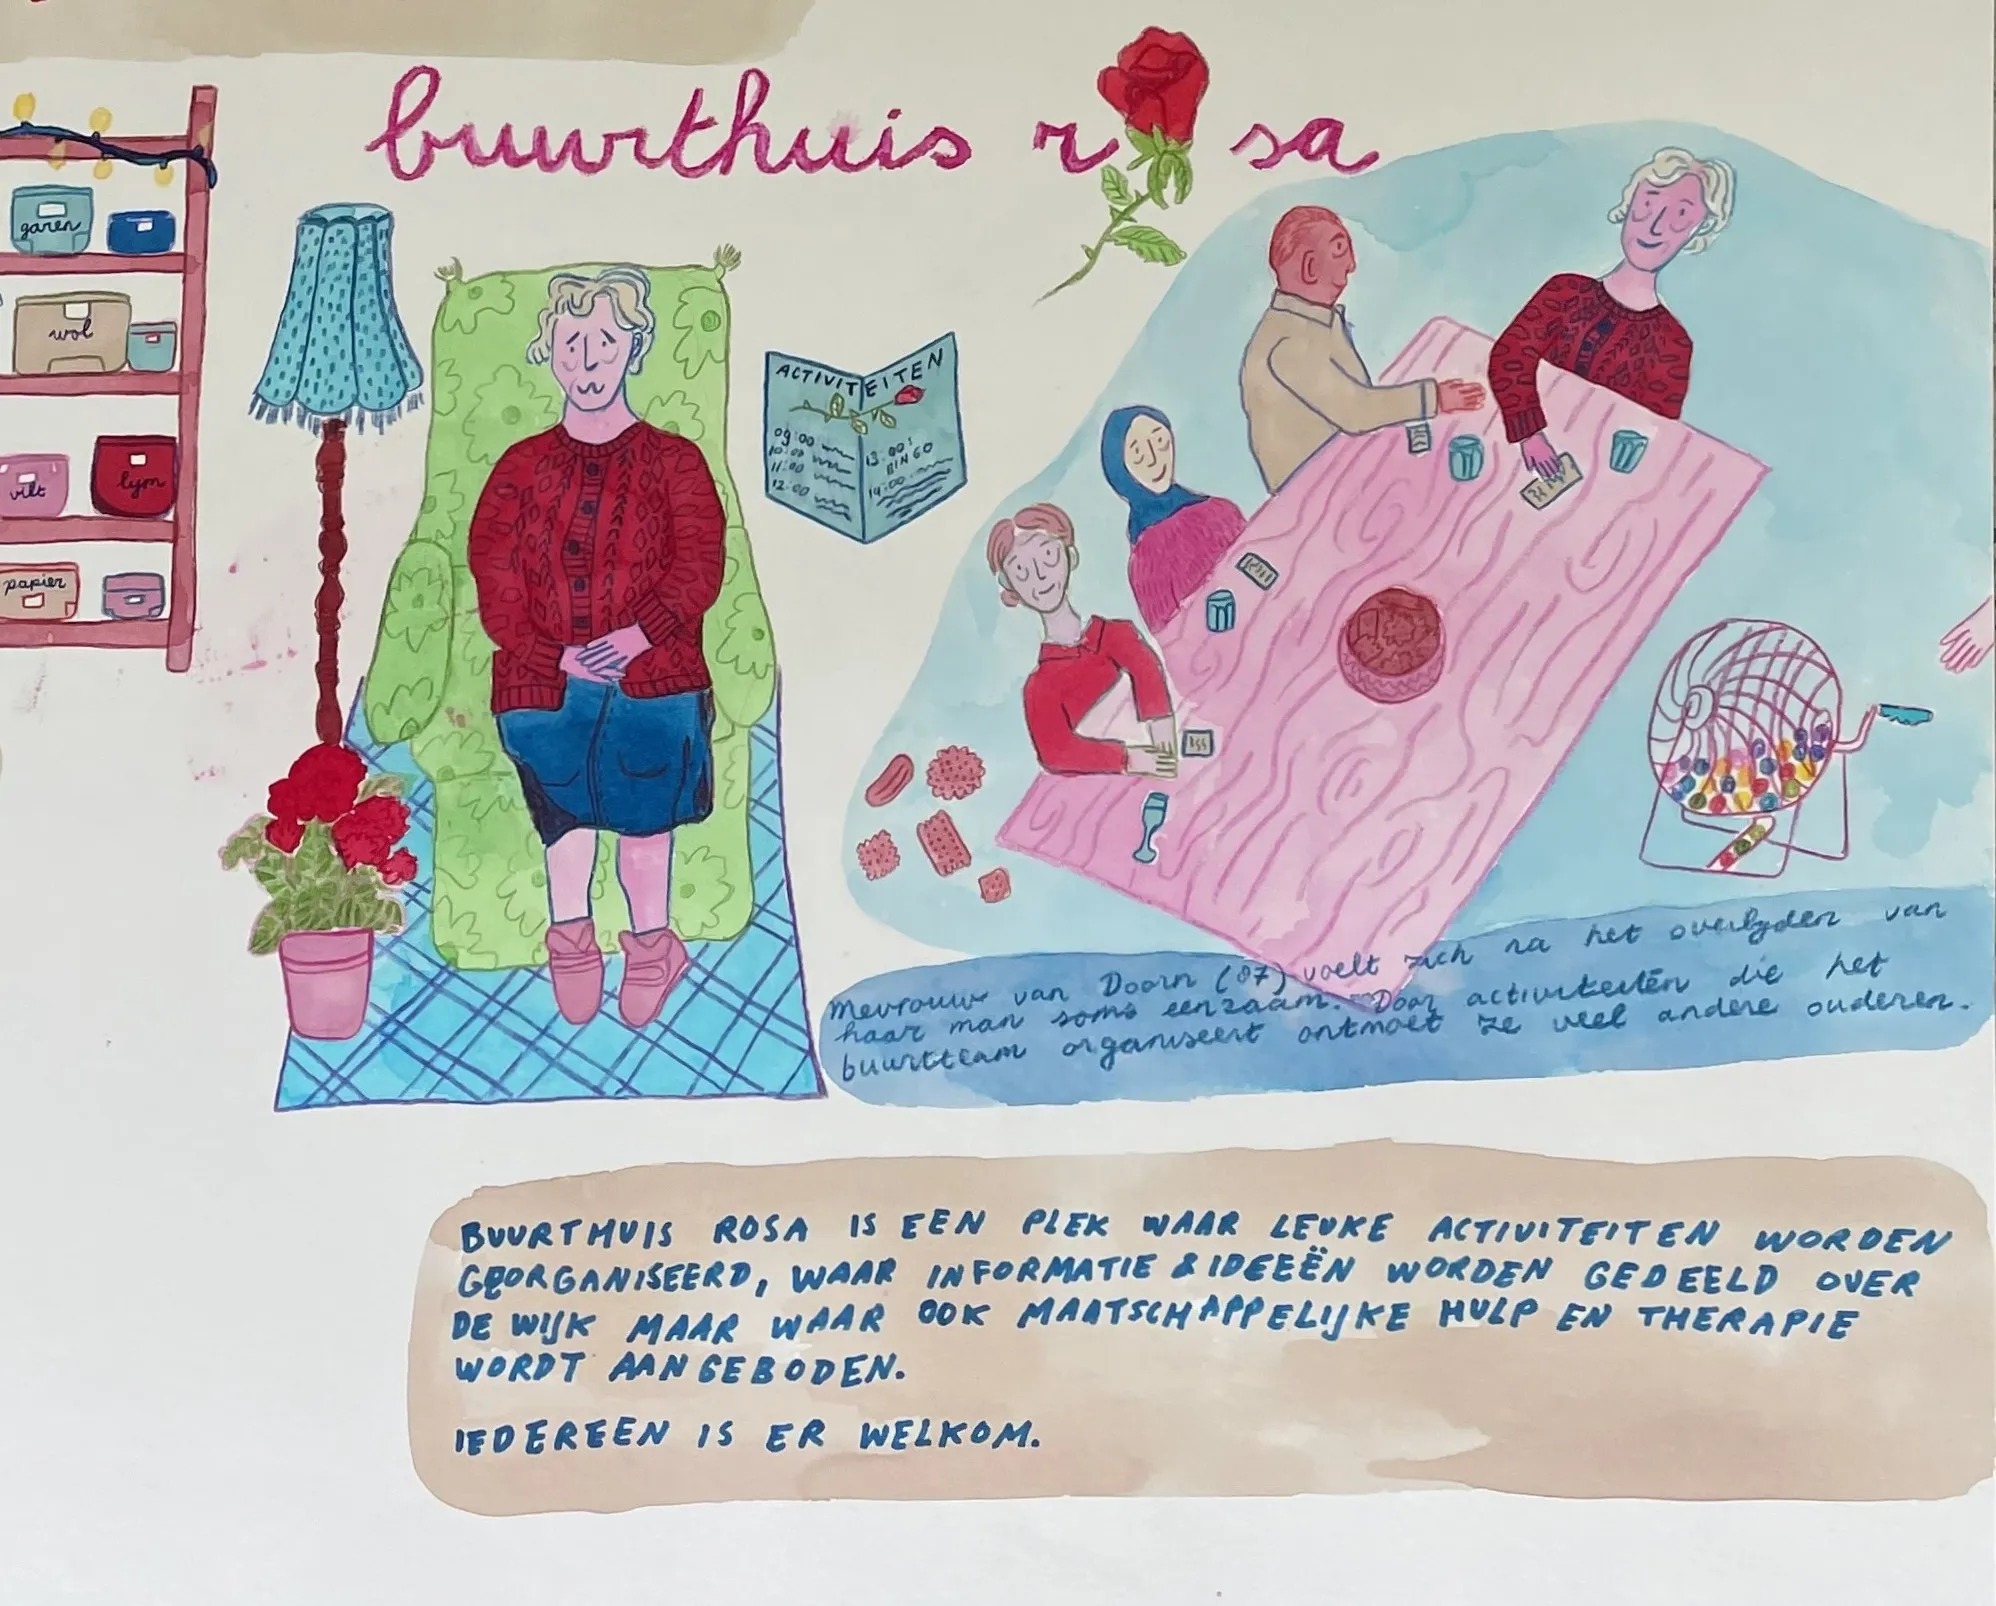 buurthuis rosa
garen
wol
vilt
lym
papier
ACTIVITEITEN
09:00
10:00
11:00
12:00
13:00:
BINGO
14:00
Mevrouw van Doorn (87) voelt zich na het overlyden van
haar man soms eenzaam. Door activiteiten die het
buurtteam organiseert ontmoet ze veel andere ouderen.
BUURTHUIS ROSA IS EEN PLEK WAAR LEUKE ACTIVITEITEN WORDEN
GEORGANISEERD, WAAR INFORMATIE & IDEEËN WORDEN GEDEELD OVER
DE WIJK MAAR WAAR OOK MAATSCHAPPELIJKE HULP EN THERAPIE
WORDT AANGEBODEN.
IEDEREEN IS ER WELKOM.